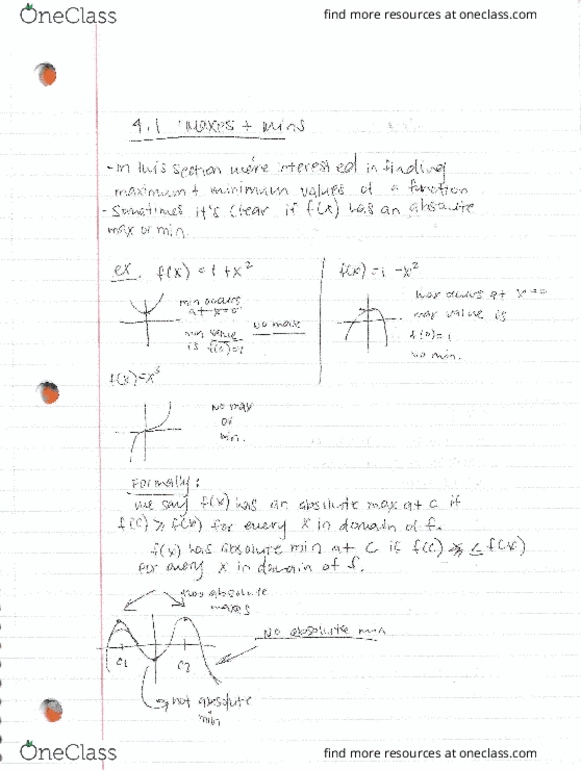 OneClass
find more resources at oneclass.com
4.1 Maxes + Mins
- In this section we're interested in finding
maximum + minimum values of a function
- Sometimes it's clear if f(x) has an absolute
max or min.
ex. f(x) = 1 + x²
min occurs
at x=0
min value
is f(0)=1
No max
f(x) = 1 - x²
max occurs at x=0
max value is
f(0)=1
no min.
f(x)=x³
No max
or
min.
Formally:
we say f(x) has an absolute max at c if
f(c) ≥ f(x) for every x in domain of f.
f(x) has absolute min at c if f(c) ≤ f(x)
for every x in domain of f.
absolute
maxes
No absolute min
c1
c2
not absolute
min
OneClass
find more resources at oneclass.com